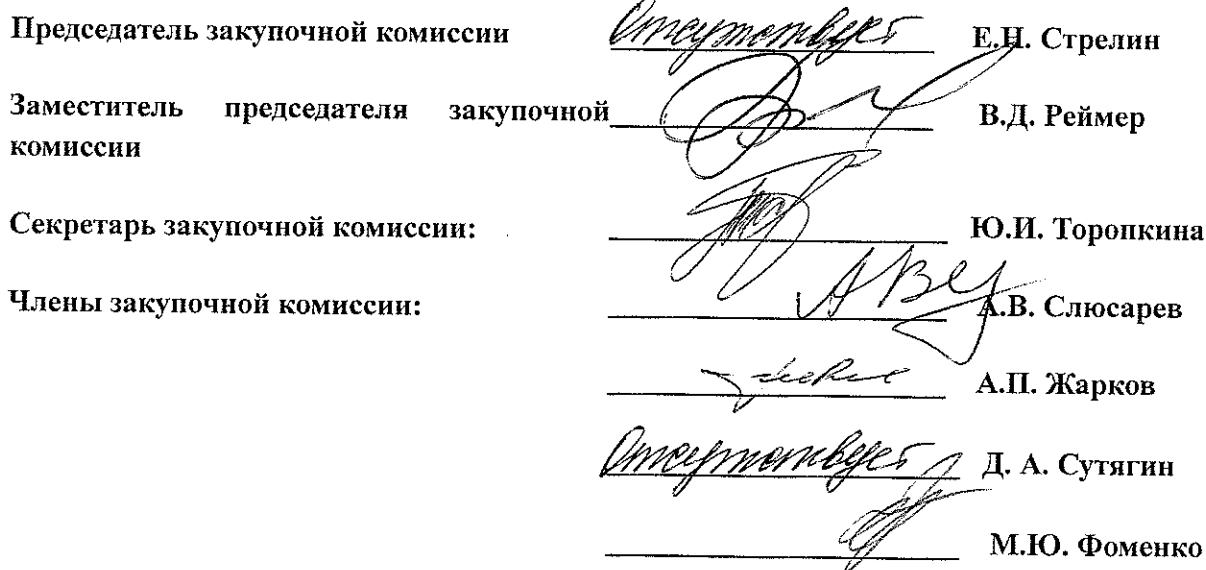 Председатель закупочной комиссии Отсутствует Е.Н. Стрелин
Заместитель председателя закупочной
комиссии В.Д. Реймер
Секретарь закупочной комиссии: Ю.И. Торопкина
Члены закупочной комиссии: А.В. Слюсарев
А.П. Жарков
Отсутствует Д. А. Сутягин
М.Ю. Фоменко